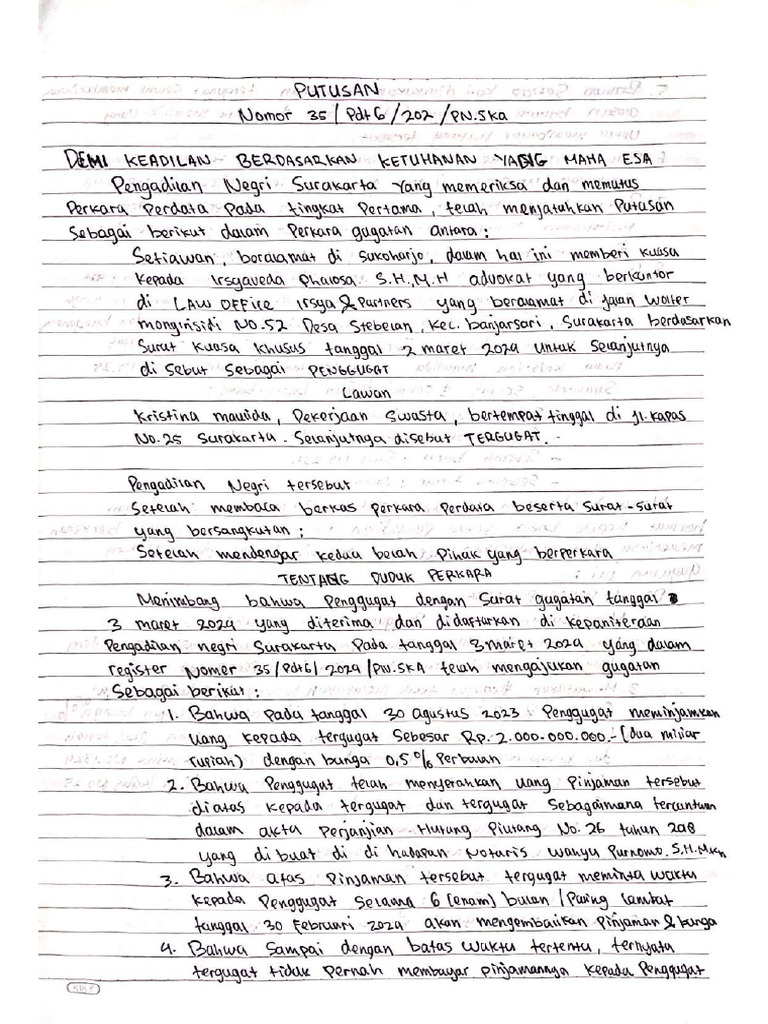 PUTUSAN
Nomor 35 / Pdt G / 202 / PN.Ska
DEMI KEADILAN BERDASARKAN KETUHANAN YANG MAHA ESA
Pengadilan Negri Surakarta yang memeriksa dan memutus
Perkara Perdata Pada tingkat Pertama, telah menjatuhkan Putusan
Sebagai berikut dalam Perkara gugatan antara :
Setiawan, beralamat di sukoharjo, dalam hal ini memberi kuasa
kepada Irsyaveda Phalosa S.H.,M.H advokat yang berkantor
di LAW OFFICE Irsya & Partners yang beralamat di jalan Wolter
monginsidi NO.52 Desa Stebelan, Kec. banjarsari, Surakarta berdasarkan
Surat Kuasa Khusus tanggal 2 maret 2024 untuk Selanjutnya
di sebut Sebagai PENGGUGAT
Lawan
Kristina maulida, Pekerjaan Swasta, bertempat tinggal di Jl. Kapas
No.25 Surakarta. Selanjutnya disebut TERGUGAT. -
Pengadilan Negri tersebut
Setelah membaca berkas Perkara Perdata beserta Surat-surat
yang bersangkutan ;
Setelah mendengar kedua belah Pihak yang berperkara
TENTANG DUDUK PERKARA
Menimbang bahwa Penggugat dengan Surat gugatan tanggal
3 maret 2024 yang diterima dan didaftarkan di kepaniteraan
Pengadilan negri Surakarta Pada tanggal 3 maret 2024 yang dalam
register Nomer 35 / Pdt G / 2024 / PN.SKA telah mengajukan gugatan
Sebagai berikut :
1. Bahwa pada tanggal 30 agustus 2023 Penggugat meminjamkan
uang kepada tergugat Sebesar Rp. 2.000.000.000.- (dua miliar
rupiah) dengan bunga 0,5 % Perbulan
2. Bahwa Penggugat telah menyerahkan uang Pinjaman tersebut
diatas kepada tergugat dan tergugat Sebagaimana tercantum
dalam akta Perjanjian Hutang Piutang No. 26 tahun 2018
yang di buat di di hadapan Notaris Wahyu Purnomo. S.H.Mkn
3. Bahwa atas Pinjaman tersebut tergugat meminta waktu
kepada Penggugat Selama 6 (enam) bulan / Paling lambat
tanggal 30 Februari 2024 akan mengembalikan Pinjaman & bunga
4. Bahwa Sampai dengan batas waktu tertentu, ternyata
tergugat tidak Pernah membayar pinjamannya kepada Penggugat